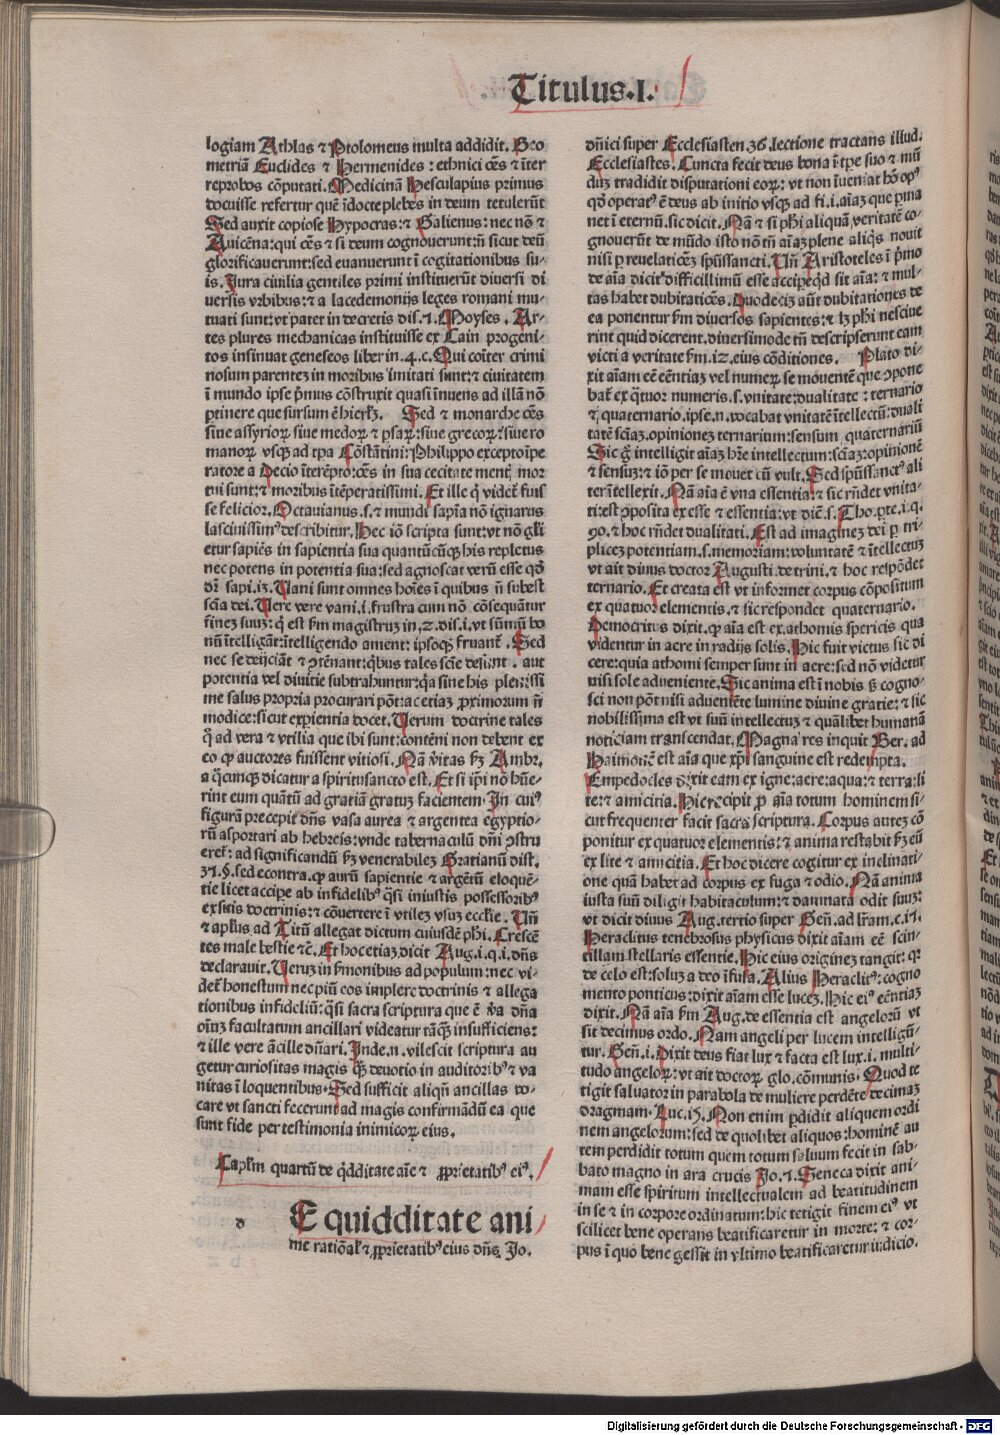 Titulus.I.
logiam Athlas ⁊ Ptolomeus multa addidit. Geo
metriã Euclides ⁊ Hermenides: ethnici oẽs ⁊ ĩter
reprobos cõputati. Medicinã Hesculapius primus
docuisse refertur quẽ ĩdocte plebes in deum tetulerũt
Sed auxit copiose Hypocras: ⁊ Galienus: nec nõ ⁊
Auicẽna: qui oẽs ⁊ si deum cognouerunt: ñ sicut deũ
glorificauerunt: sed euanuerunt ĩ cogitationibus su
is. Jura ciuilia gentiles primi instituerũt diuersi di
uersis vrbibus: ⁊ a lacedemonijs leges romani mu
tuati sunt: vt patet in decretis dis. 7. Moyses. Ar
tes plures mechanicas instituisse ex Cain progeni
tos insinuat geneseos liber in. 4. c. Qui coĩter crimi
nosum parentez in moribus imitati sunt: ⁊ ciuitatem
ĩ mundo ipse p̃mus cõstruxit quasi ĩnuens ad illã nõ
ꝑtinere que sursum ẽ hierłz. Sed ⁊ monarche oẽs
siue assyrioꝝ siue medoꝝ ⁊ ꝑsaꝝ: siue grecoꝝ: siue ro
manoꝝ vsqꝫ ad tꝑa Cõstãtini: Philippo excepto ĩpe
ratore a Decio ĩterẽpto: oẽs in sua cecitate mentꝭ mor
tui sunt: ⁊ moribus ĩtẽperatissimi. Et ille q̃ videt̃ fuis
se felicior. Octauianus. s. ⁊ mundi sapĩa nõ ignarus
lasciuissimꝰ describitur. Hec iõ scripta sunt: vt nõ głi
etur sapiẽs in sapientia sua quantũcũqꝫ his repletus
nec potens in potentia sua: sed agnoscat verũ esse qđ
dr̃ sapi. 13. Uani sunt omnes hoĩes ĩ quibus ñ subest
scĩa dei. Uere vere vani. i. frustra cum nõ cõsequãtur
finez suuz: q̃ est fm magistruz in. 2. dis. i. vt sũmũ bo
nũ ĩtelligãt: ĩtelligendo ament: ipsoqꝫ fruant̃. Sed
nec se deijciãt ⁊ ꝯtẽnant: q̃bus tales scĩe desunt. aut
potentia vel diuitie subtrahuntur: q̃a sine his plenissi
me salus propria procurari põt: ac etiaz proximorum ñ
modice: sicut exꝑientia docet. Uerum doctrine tales
q̃ ad vera ⁊ vtilia que ibi sunt: contẽni non debent ex
eo ꝙ auctores fuissent vitiosi. Nã v̾itas fꝫ Ambr.
a q̃cunqꝫ dicatur a spiritusancto est. Et si ip̃i nõ hũe
rint eum quãtũ ad gratiã gratuz facientem. In cuiꝰ
figurã precepit dñs vasa aurea ⁊ argentea egyptio
rũ asportari ab hebreis: vnde tabernaculũ dñi ꝯstru
eret̃: ad significandũ fꝫ venerabilez Gratianũ dist.
37. §. sed econtra. ꝙ aurũ sapientie ⁊ argẽtũ eloquẽ
tie licet accipe ab infidelibꝰ q̃si iniustis possessoribꝰ
exsitis doctrinis: ⁊ cõuertere ĩ vtilez vsuz ecclie. Uñ
⁊ apłus ad Titũ allegat dictum cuiusdẽ pħi. Cretẽn
tes male bestie ⁊c̃. Et hoc etiaz dicit Aug. i. q. i. dñs
declarauit. Ueruz in fmonibus ad populum: nec vi
det̃ honestum nec piũ eos implere doctrinis ⁊ allega
tionibus infideliũ: q̃si sacra scriptura que ẽ v̾a dñã
oĩuz facultatum ancillari videatur tãqꝫ insufficiens:
⁊ ille vere ãcille dñari. Inde. n. vilescit scriptura au
getur curiositas magis qꝫ deuotio in auditoribꝰ ⁊ va
nitas ĩ loquentibus. Sed sufficit aliqñ ancillas vo
care vt sancti fecerunt ad magis confirmãdũ ea que
sunt fide per testimonia inimicoꝝ eius.
Capłm quartũ de q̃dditate aĩe ⁊ ꝓprietatibꝰ eiꝰ.
d E quidditate ani
me ratiõał ⁊ ꝓprietatibꝰ eius dñs Jo.
dñici super Ecclesiasten. 36. lectione tractans illud.
Ecclesiastes. Cuncta fecit deus bona ĩ tꝑe suo ⁊ mũ
duz tradidit disputationi eoꝝ: vt non ĩueniat hõ opꝰ
qđ operatꝰ ẽ deus ab initio vsqꝫ ad fi. i. aĩaz que ꝑma
net ĩ eternũ. sic dicit. Nã ⁊ si pħi aliquã veritatẽ co
gnouerũt de mũdo isto nõ tñ aĩaz plene aliq̃s nouit
nisi ꝑ reuelationẽ spũssancti. Uñ Aristoteles ĩ p̃mo
de aĩa dicit difficillimũ esse accipe qđ sit aĩa: ⁊ mul
tas habet dubitatiões. Duodeciz aũt dubitationes de
ea ponentur fm diuersos sapientes: ⁊ lꝫ pħi nesciue
rint quid dicerent. diuersimode tñ descripserunt eam
victi a veritate fm. 12. eius cõditiones. Plato di
xit aĩam eẽ eẽntiaz vel numeꝝ se mouentẽ que ꝯpone
bat̃ ex q̃tuor numeris. s. vnitate: dualitate: ternario
⁊ quaternario. ipse. n. vocabat vnitatẽ ĩtellectũ: duali
tatẽ scĩaz. opinionez ternarium: sensum quaternariũ
Sic g̃ intelligit aĩaz hr̃e intellectum: scĩaz: opinionẽ
⁊ sensuz: ⁊ iõ per se mouet cũ vult. Sed spũssanctꝰ ali
ter ĩtellexit. Nã aĩa ẽ vna essentia: ⁊ sic rñdet vnita
ti: est ꝯposita ex esse ⁊ essentia: vt diẽ. s. Tho. ꝑte. i. q.
90. ⁊ hoc rñdet dualitati. Est ad imaginez dei ꝑ tri
plicez potentiam. s. memoriam: voluntatẽ ⁊ ĩtellectuz
vt ait diuus doctor Augusti. de trini. ⁊ hoc respõdet
ternario. Et creata est vt informet corpus cõpositum
ex quatuor elementis. ⁊ sic respondet quaternario.
Democritus dixit. ꝙ aĩa est ex. athomis spericis qua
videntur in aere in radijs solis. Hic fuit victus sic di
cere: quia athomi semper sunt in aere: sed nõ videtur
nisi sole adueniente. Sic anima est ĩ nobis ſꝫ cogno
sci non põt nisi adueniẽte lumine diuine gratie: ⁊ sic
nobilissima est vt suũ intellectuz ⁊ quãlibet humanã
noticiam transcendat. Magna res inquit Ber. ad
Haimoniẽ est aĩa que xp̃i sanguine est redempta.
Empedocles dixit eam ex igne: aere: aqua: ⁊ terra: li
te: ⁊ amicitia. Hic recipit ꝓ aĩa totum hominem si
cut frequenter facit sacra scriptura. Corpus autez cõ
ponitur ex quatuor elementis: ⁊ anima restabit fꝫ eũ
ex lite ⁊ amicitia. Et hoc dicere cogitur ex inclinati
one quã habet ad corpus ex fuga ⁊ odio. Nã anima
iusta suũ diligit habitaculum: ⁊ damnata odit suuz:
vt dicit diuus Aug. tertio super Geñ. ad lr̃am. c. 17.
Heraclitus tenebrosus physicus dixit aĩam eẽ scin
tillam stellaris essentie. Hic eius originez tangit: q
de celo est: soluz a deo ĩfusa. Alius Heraclitꝰ: cogno
mento ponticus: dixit aĩam esse lucez. Hic eiꝰ eẽntiaz
dixit. Nã aĩa fm Aug. de essentia est angelorũ vt
sit decimus ordo. Nam angeli per lucem intelligũ
tur. Geñ. i. Dixit deus fiat lux ⁊ facta est lux. i. multi
tudo angeloꝝ: vt ait doctoꝝ glo. cõmunis. Quod te
tigit saluator in parabola de muliere perdẽte decimaz
dragmam. Luc. 15. Non enim ꝑdidit aliquem ordi
nem angelorum: sed de quolibet aliquos: hominẽ au
tem perdidit totum quem totum saluum fecit in sab
bato magno in ara crucis Jo. 7. Seneca dixit ani
mam esse spiritum intellectualem ad beatitudinem
in se ⁊ in corpore ordinatum: hic tetigit finem eiꝰ vt
scilicet bene operans beatificaretur in morte: ⁊ cor
pus ĩ quo bene gessit in vltimo beatificaretur iudicio.
Digitalisierung gefördert durch die Deutsche Forschungsgemeinschaft - DFG